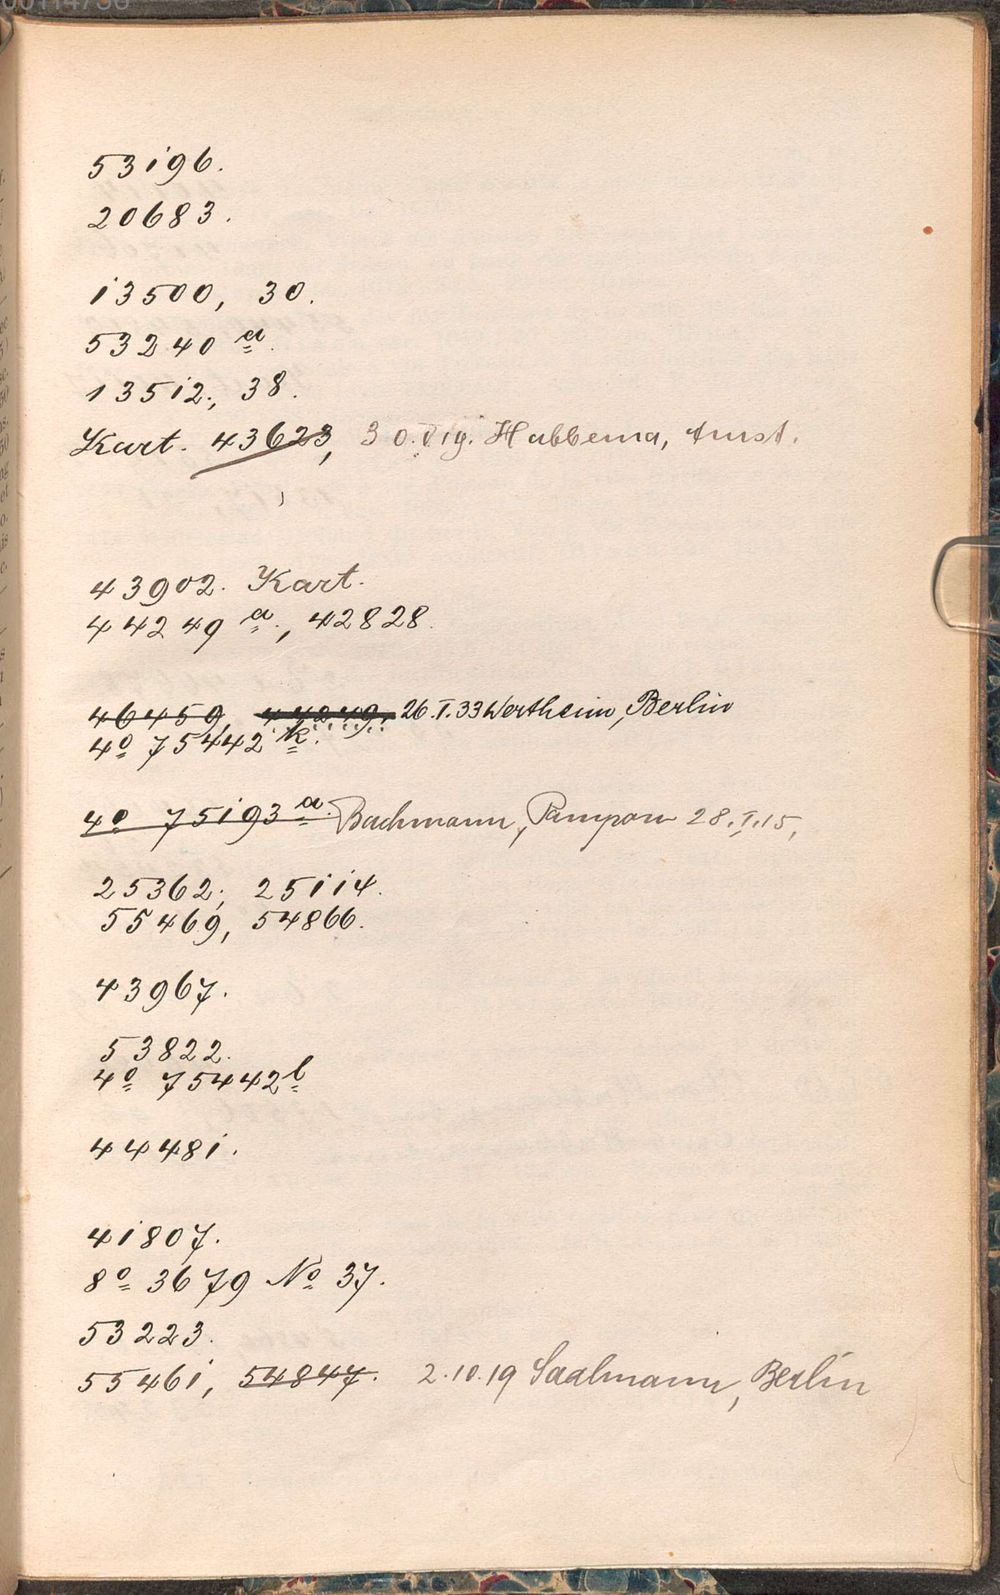 53196.
20683.
13500, 30.
53240 a.
13512., 38.
Kart. 43623, 30. V 19. Habbema, Amst.
43902. Kart.
44249 a., 42828.
46459, 44249. 26.I.33 Wertheim, Berlin
4o 75442 k.
4o 75193 a. Bachmann, Pampow 28.I.15,
25362; 25114.
55469, 54866.
43967.
53822.
4o 75442 l
44481.
41807.
8o 3679 No 37.
53223.
55461, 54847. 2.10.19 Saalmann, Berlin